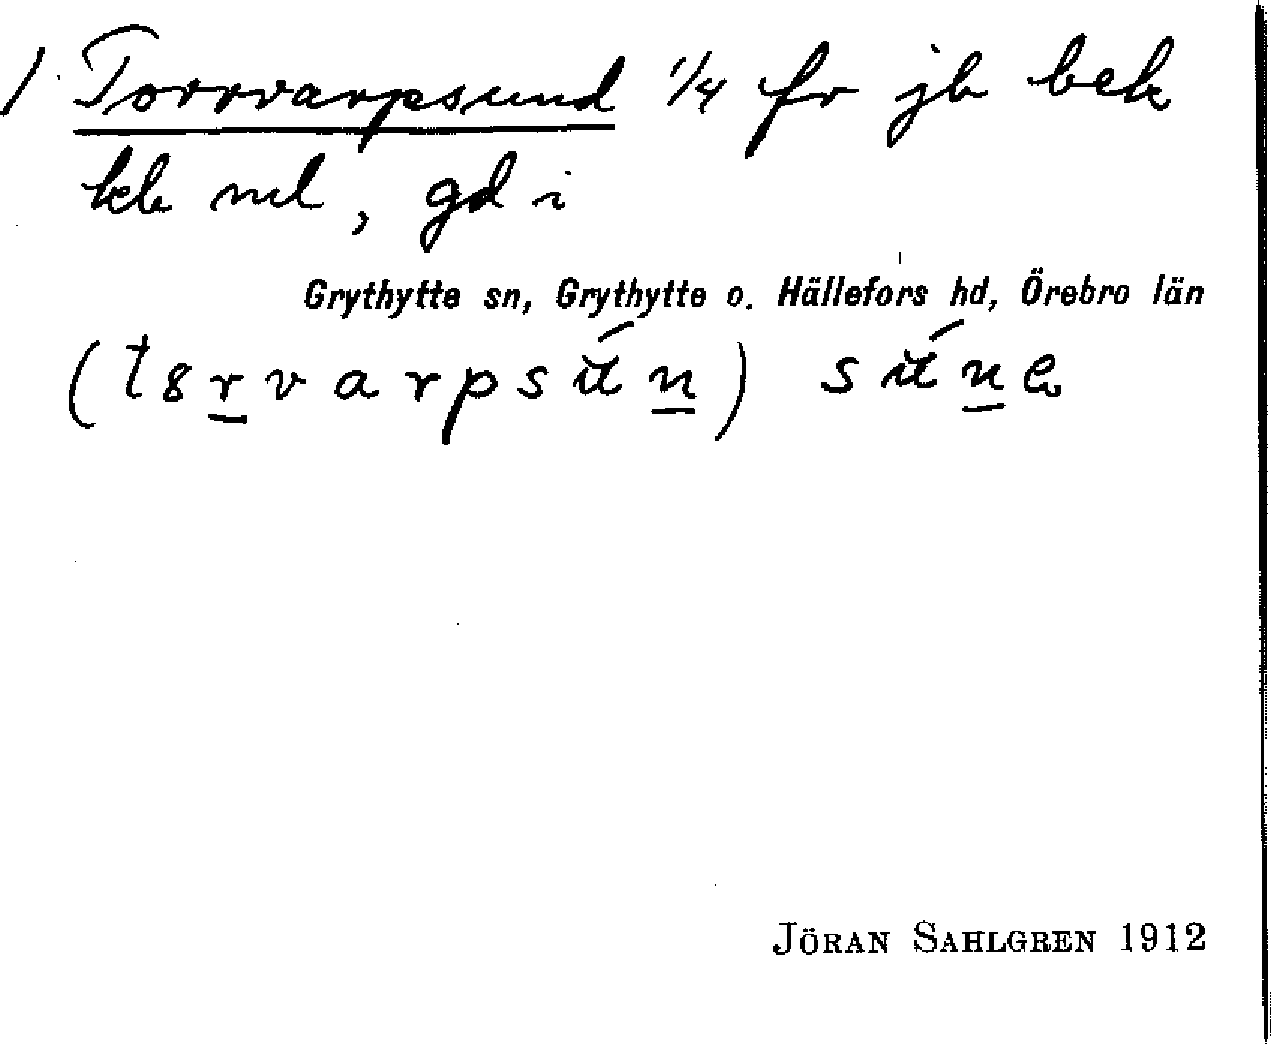 1 Torrvarpsund 1/4 fr jb bek
kb ml, gd i
Grythytte sn, Grythytte o. Hällefors hd, Örebro län
(t8r̲varpsú̵n̲) sú̵n̲e
JÖRAN SAHLGREN 1912